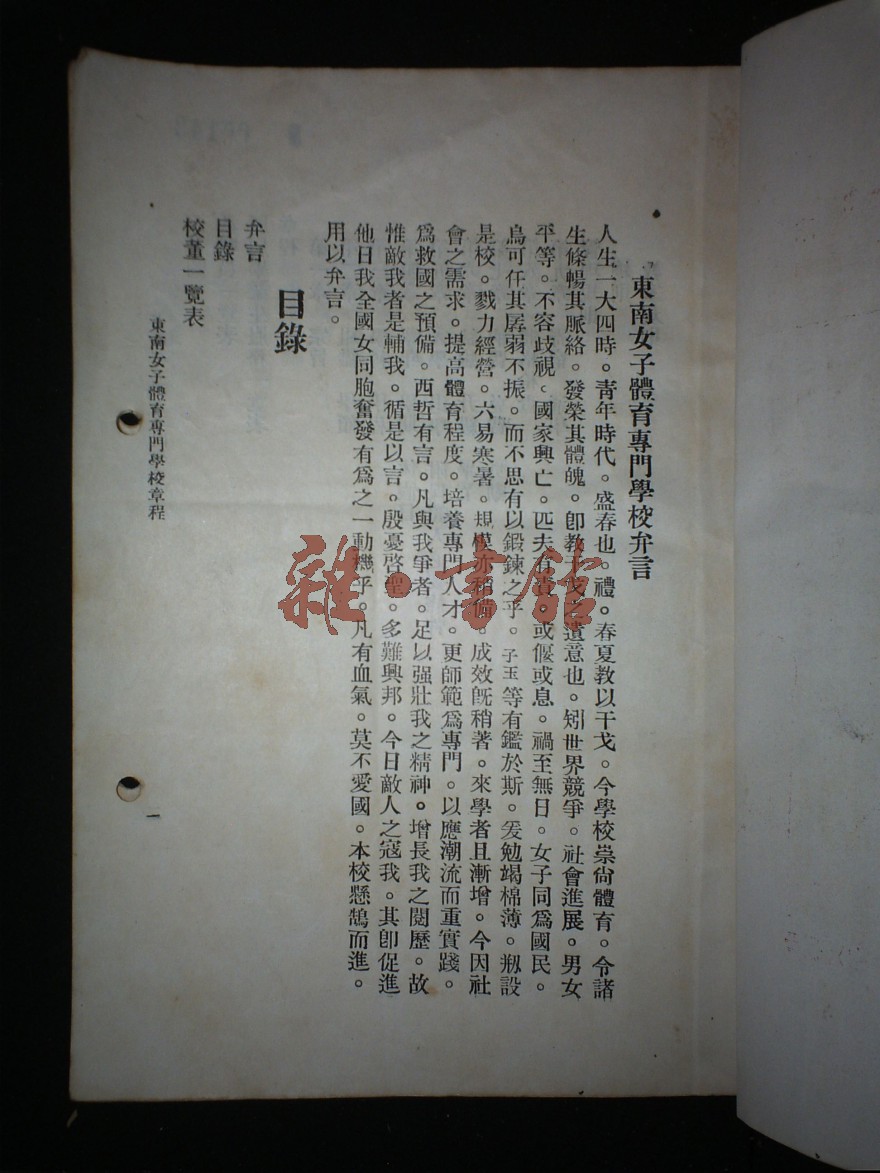 東南女子體育專門學校弁言
人生一大四時。青年時代。盛春也。禮。春夏教以干戈。今學校崇尙體育。令諸
生條暢其脈絡。發榮其體魄。卽教干戈之遺意也。矧世界競爭。社會進展。男女
平等。不容歧視。國家興亡。匹夫有責。或偃或息。禍至無日。女子同爲國民。
烏可任其孱弱不振。而不思有以鍛鍊之乎。子玉等有鑑於斯。爰勉竭棉薄。剙設
是校。戮力經營。六易寒暑。規模亦稍備。成效旣稍著。來學者且漸增。今因社
會之需求。提高體育程度。培養專門人才。更師範爲專門。以應潮流而重實踐。
爲救國之預備。西哲有言。凡與我爭者。足以强壯我之精神。增長我之閱歷。故
惟敵我者是輔我。循是以言。殷憂啓聖。多難興邦。今日敵人之寇我。其卽促進
他日我全國女同胞奮發有爲之一動機乎。凡有血氣。莫不愛國。本校懸鵠而進。
用以弁言。
目錄
弁言
目錄
校董一覽表
東南女子體育專門學校章程
一
雜·書館